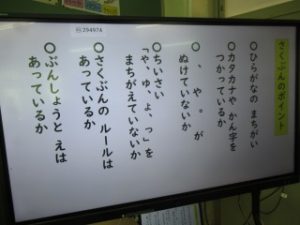 さくぶんのポイント
○ひらがなの まちがい
○カタカナや かん字を
つかっているか
○、や。が
ぬけていないか
○ちいさい
「や、ゆ、よ、っ」を
まちがえていないか
○さくぶんの ルールは
あっているか
○ぶんしょうと えは
あっているか
294974